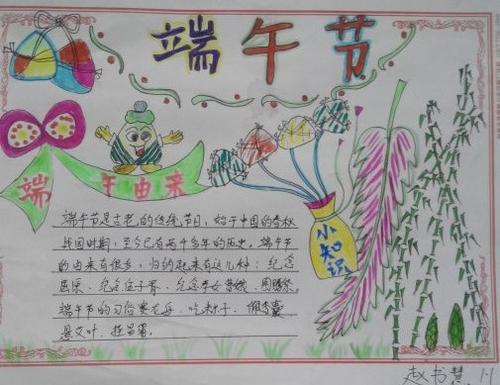 端午节
端午由来
端午节是古老的传统节日，始于中国的春秋
战国时期，至今已有两千多年的历史，端午节
的由来有很多，归纳起来有这几种：纪念
屈原、纪念伍子胥、纪念孝女曹娥、
端午节的习俗赛龙舟、吃粽子、佩香囊、
悬艾叶、挂菖蒲。
小知识
赵书慧